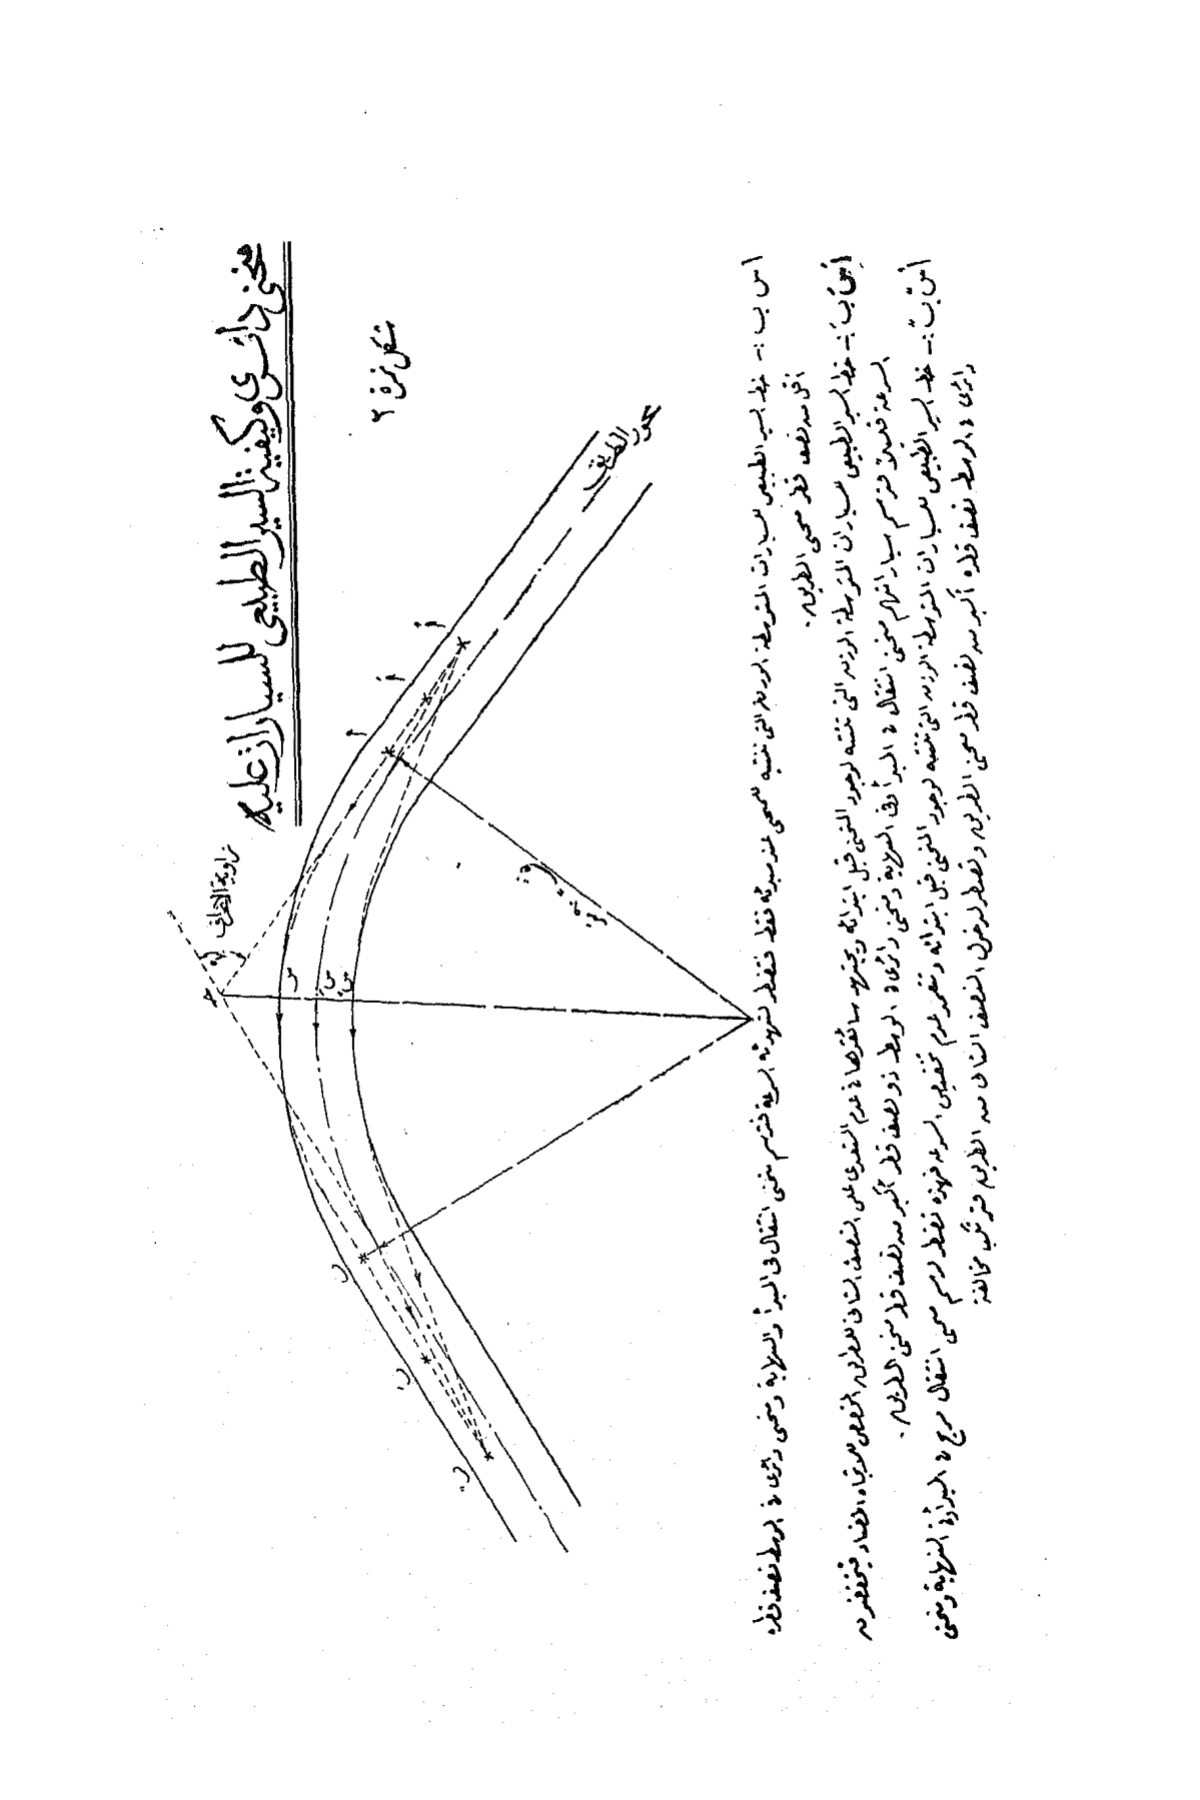 منحنى دائرى وكيفية السير الطبيعى للسيارات عليه
شكل نمرة ٢
محور الطريق
زاوية الانحراف
أ
أَ
أً
ح
س
سَ
سً
ب
بَ
بً
نصف
ا س ب :- خط السير الطبيعى للسيارات المتوسطة الوزن التى تتنبه للمنحنى عند مبدئه فقط فتضطر لتهدئة السرعة فترسم منحنى انتقال فى المبدأ والنهاية ومنحنى دائرى فى الوسط نصف قطره
أقل من نصف قطر منحنى الطريق .
أَ سَ بَ :- خط السير الطبيعى للسيارات المتوسطة الوزن التى تتنبه لوجود المنحنى قبل ابتدائه ويجتهد سائقوها فى عدم التعدى على النصف الثانى للطريق المخصص للاتجاه المضاد فيخفضون
السرعة قليلا فترسم سياراتهم منحنى انتقال فى المبدأ وفى النهاية ومنحنى دائرى فى الوسط ذو نصف قطر أكبر من نصف قطر منحنى الطريق .
أً سً بً :- خط السير الطبيعى للسيارات المتوسطة الوزن التى تتنبه لوجود المنحنى قبل ابتدائه وتتعمد عدم تخفيض السرعة فهذه تضطر لرسم منحنى انتقال مريح فى المبدأ وفى النهاية ومنحنى
دائرى فى الوسط نصف قطره أكبر من نصف قطر منحنى الطريق وتضطر لدخول النصف الثانى من الطريق فترتكب مخالفة